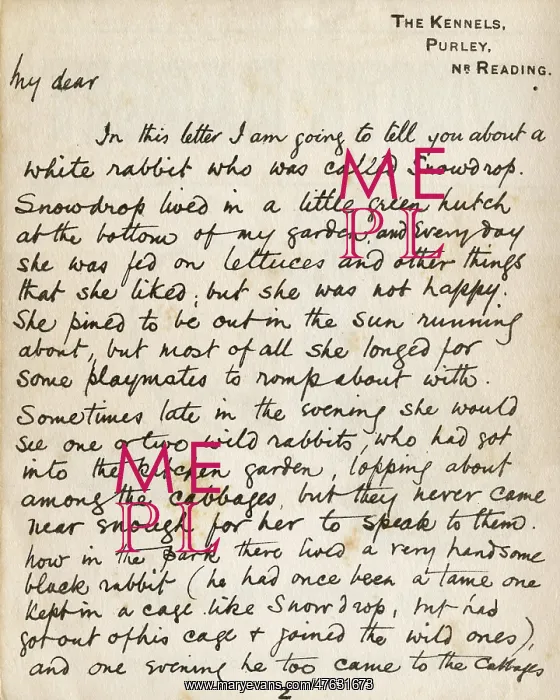 THE KENNELS,
PURLEY,
NR READING.
My dear
In this letter I am going to tell you about a
white rabbit who was called Snowdrop.
Snowdrop lived in a little green hutch
at the bottom of my garden, and every day
she was fed on lettuces and other things
that she liked, but she was not happy.
She pined to be out in the sun running
about, but most of all she longed for
some playmates to romp about with.
Sometimes late in the evening she would
see one or two wild rabbits, who had got
into the kitchen garden, lopping about
among the cabbages, but they never came
near enough for her to speak to them.
now in the Park there lived a very handsome
black rabbit (he had once been a tame one
kept in a cage like Snowdrop, but had
got out of his cage & joined the wild ones),
and one evening he too came to the cabbages
2
ME
PL
ME
PL
www.maryevans.com/47631673